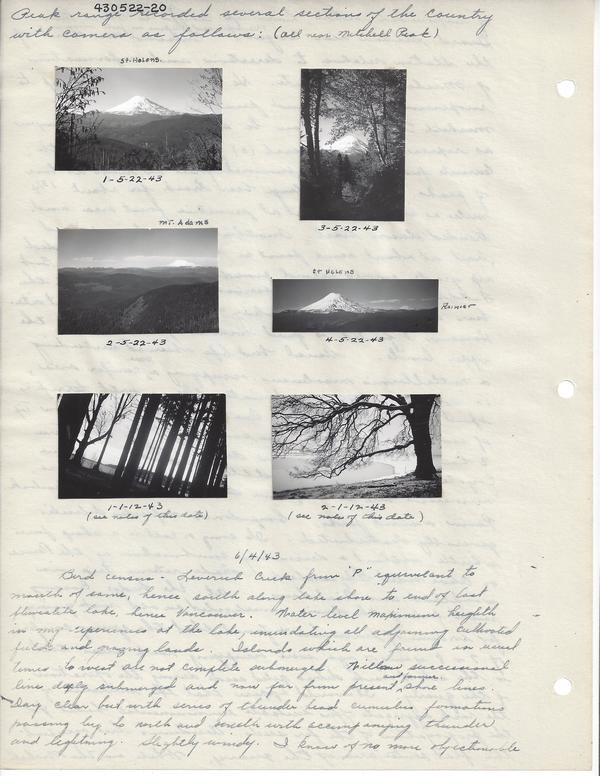 430522-20
Peak range recorded several sections of the country
with camera as follows: (all near Mitchell Peak)
St. Helens.
1-5-22-43
3-5-22-43
Mt. Adams
2-5-22-43
St Helens
Rainier
4-5-22-43
1-1-12-43
(see notes of this date)
2-1-12-43
(see notes of this date)
6/4/43
Bird census - Leverich Creek from "P" equivalent to
mouth of same, hence south along lake shore to end of last
lake, hence Vancouver. Water level maximum heighth
in my experiences at the lake, inundating all adjoining cultivated
fields and grazing lands. Islands which are found in usual
times to west are not complete submerged. Willow successional
and former
lines deeply submerged and now far from present shore lines.
Day clear but with series of thunder head cumulus formations
passing by to north and south with accompanying thunder
and lightning. Slightly windy. I know of no more objectionable